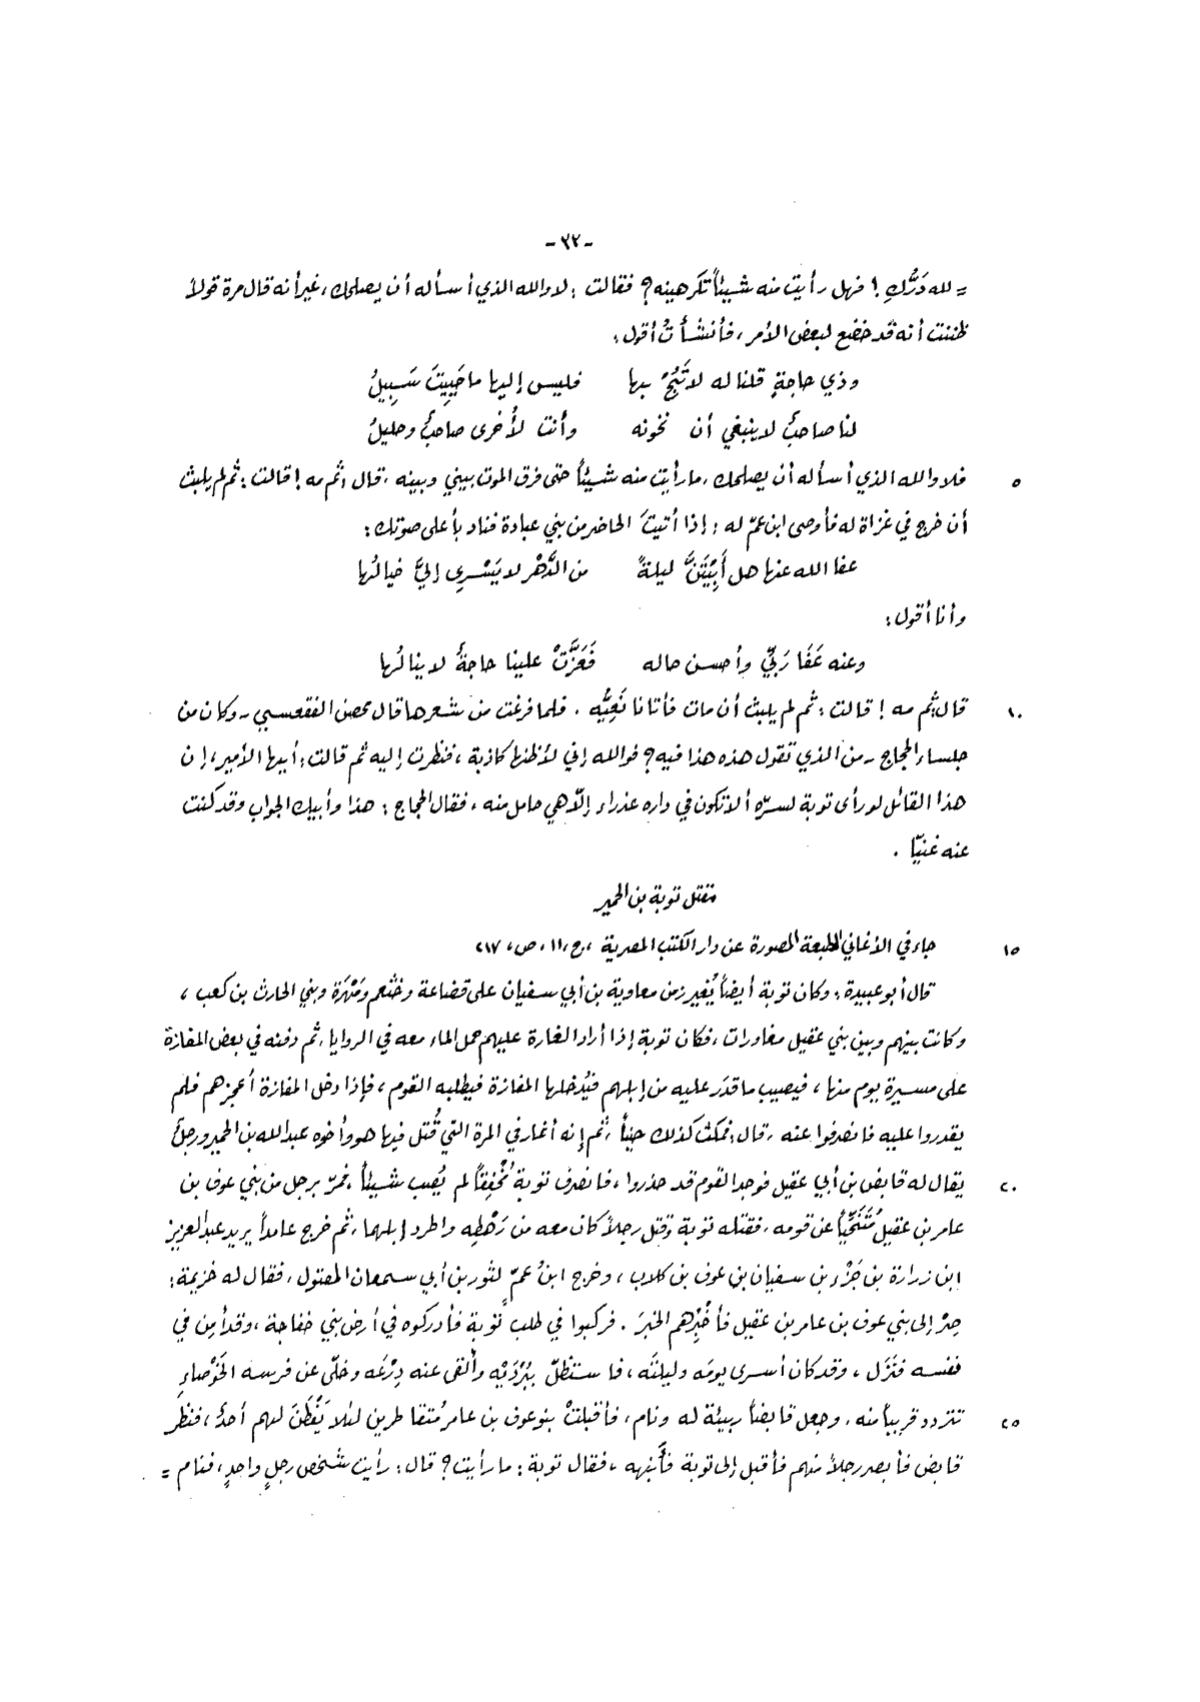 - ٢٢ -
= لله دَرُّكِ! فهل رأيت منه شيئاً تكرهينه؟ فقالت: لا والله الذي أسأله أن يصلحك، غير أنه قال مرة قولاً
ظننت أنه قد خضع لبعض الأمر، فأنشأتُ أقول:
وذي حاجةٍ قلنا له لا تَبُحْ بها فليس إليها ما حَيِيتَ سَبِيلُ
لنا صاحبٌ لا ينبغي أن نخونه وأنت لأُخرى صاحبٌ وحليلُ
٥ فلا والله الذي أسأله أن يصلحك، ما رأيت منه شيئاً حتى فرق الموت بيني وبينه، قال: ثم مه! قالت: ثم لم يلبث
أن خرج في غزاة له فأوصى ابن عمّ له: إذا أتيتَ الحاضر من بني عبادة فناد بأعلى صوتك:
عفا الله عنها هل أَبِيْتَنَّ ليلةً من الدَّهْر لا يَسْرِي إليَّ خيالُها
وأنا أقول:
وعنه عَفَا رَبِّي وأحسن حاله فَعَزَّتْ علينا حاجةٌ لا ينالُها
١٠ قال: ثم مه! قالت: ثم لم يلبث أن مات فأتانا نَعِيُّه. فلما فرغت من شعرها قال محصن الفقعسي - وكان من
جلساء الحجاج - من الذي تقول هذه هذا فيه؟ فوالله إني لأظنها كاذبة، فنظرت إليه ثم قالت: أيها الأمير، إن
هذا القائل لو رأى توبة لسرّه ألا تكون في داره عذراء إلّا هي حامل منه، فقال الحجاج: هذا وأبيك الجواب وقد كنت
عنه غنيّا.
مقتل توبة بن الحمير
١٥ جاء في الأغاني الطبعة المصورة عن دار الكتب المصرية، ج، ١١، ص، ٢١٧
قال أبو عبيدة: وكان توبة أيضاً يُغير زمن معاوية بن أبي سفيان على قضاعة وخثعم ومَهْرَة وبني الحارث بن كعب،
وكانت بينهم وبين بني عقيل مغاورات، فكان توبة إذا أراد الغارة عليهم حمل الماء معه في الروايا، ثم دفنه في بعض المفازة
على مسيرة يوم منها، فيصيب ما قدَر عليه من إبلهم فيُدخلها المفازة فيطلبه القوم، فإذا دخل المفازة أعجزهم فلم
يقدروا عليه فانصرفوا عنه، قال: فمكث كذلك حيناً، ثم إنه أغار في المرة التي قُتل فيها هو وأخوه عبد الله بن الحمير ورجلٌ
٢٠ يقال له قابض بن أبي عقيل فوجد القوم قد حذروا، فانصرف توبة مُخْفِقاً لم يُصب شيئاً، فمرّ برجل من بني عوف بن
عامر بن عقيل مُتَنَحِّياً عن قومه، فقتله توبة وقتل رجلاً كان معه من رَهْطِه واطرد إبلهما، ثم خرج عامداً يريد عبد العزيز
ابن زرارة بن جَزْء بن سفيان بن عوف بن كلاب، وخرج ابنُ عمٍّ لثور بن أبي سمعان المقتول، فقال له خزيمة:
صِرْ إلى بني عوف بن عامر بن عقيل فأخْبِرْهم الخبرَ. فركبوا في طلب توبة فأدركوه في أرض بني خفاجة، وقد أمِن في
نفسه فنَزَل، وقد كان أسرى يومَه وليلتَه، فاستظلّ بِبُرْدَيْه وألقى عنه دِرْعَه وخلّى عن فرسه الخَوْصاءِ
٢٥ تتردد قريباً منه، وجعل قابضاً ربيئة له ونام، فأقبلتْ بنو عوف بن عامر مُتقاطرين لئلا يَفْطَنَ لهم أحدٌ، فنظر
قابض فأبصر رجلاً منهم فأقبل إلى توبة فأنبهه، فقال توبة: ما رأيت؟ قال: رأيت شخص رجلٍ واحدٍ، فنام =